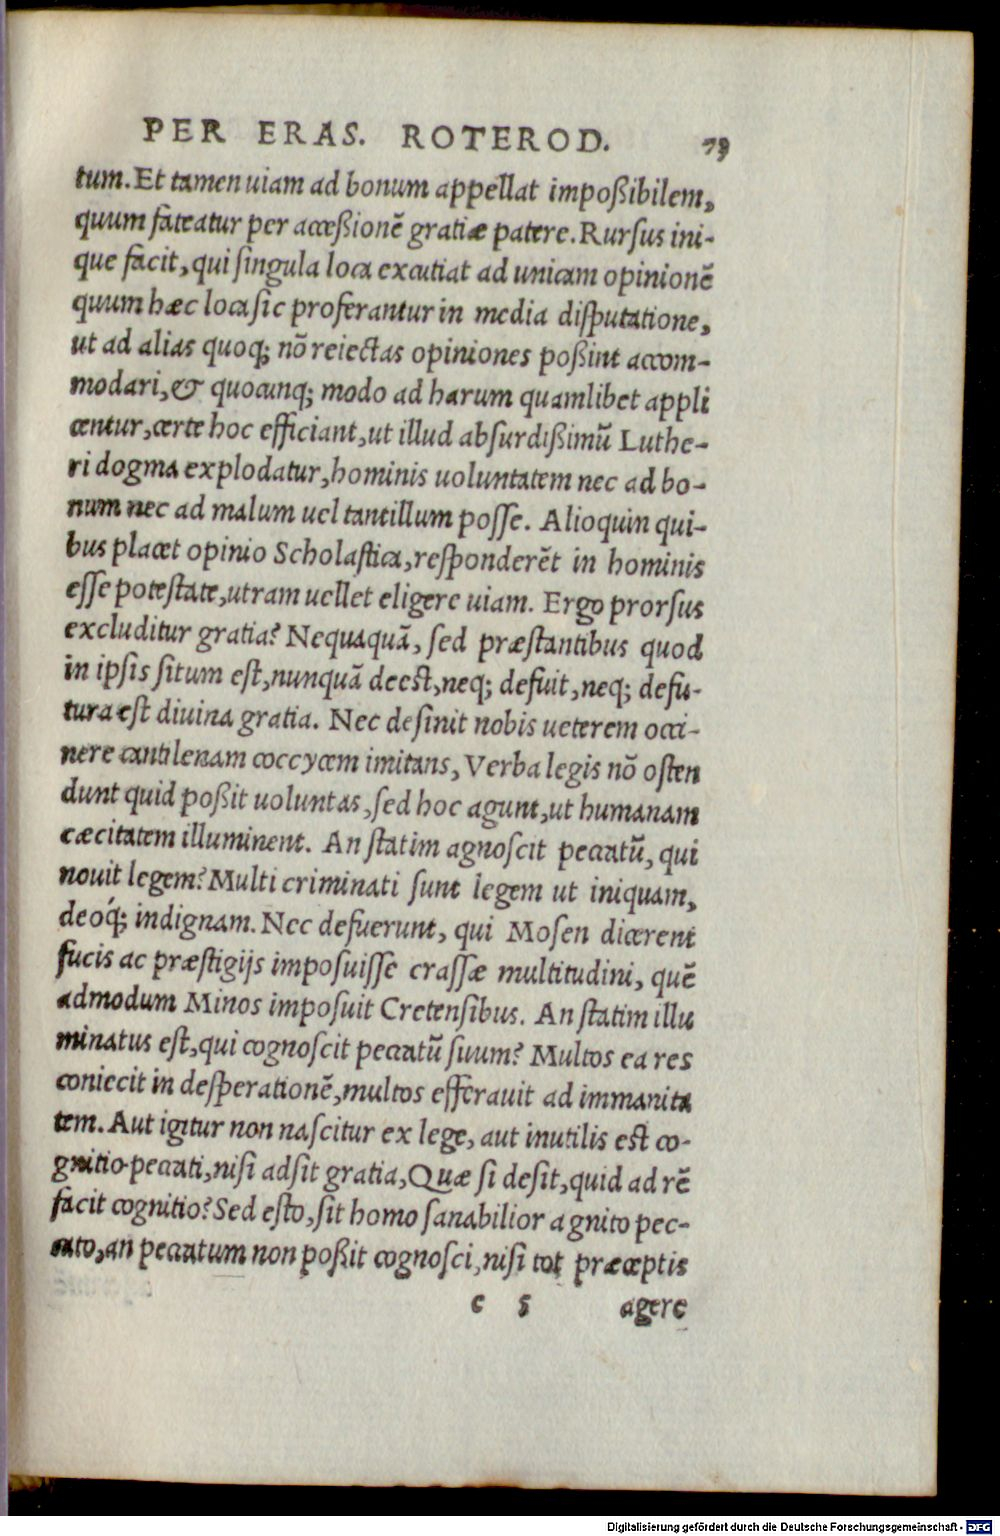 PER ERAS. ROTEROD. 79
tum. Et tamen uiam ad bonum appellat impoßibilem,
quum fateatur per acceßionē gratiæ patere. Rursus ini-
que facit, qui singula loca excutiat ad unicam opinionē
quum hæc loca sic proferantur in media disputatione,
ut ad alias quoq; nō reiectas opiniones poßint accom-
modari, & quocunq; modo ad harum quamlibet appli
centur, certe hoc efficiant, ut illud absurdißimū Luthe-
ri dogma explodatur, hominis uoluntatem nec ad bo-
num nec ad malum uel tantillum posse. Alioquin qui-
bus placet opinio Scholastica, responderēt in hominis
esse potestate, utram uellet eligere uiam. Ergo prorsus
excluditur gratia? Nequaquā, sed præstantibus quod
in ipsis situm est, nunquā deest, neq; defuit, neq; defu-
tura est diuina gratia. Nec desinit nobis ueterem occi-
nere cantilenam coccycem imitans, Verba legis nō osten
dunt quid poßit uoluntas, sed hoc agunt, ut humanam
cæcitatem illuminent. An statim agnoscit peccatū, qui
nouit legem? Multi criminati sunt legem ut iniquam,
deoq́; indignam. Nec defuerunt, qui Mosen dicerent
fucis ac præstigijs imposuisse crassæ multitudini, quē
admodum Minos imposuit Cretensibus. An statim illu
minatus est, qui cognoscit peccatū suum? Multos ea res
coniecit in desperationē, multos efferauit ad immanita
tem. Aut igitur non nascitur ex lege, aut inutilis est co-
gnitio peccati, nisi adsit gratia, Quæ si desit, quid ad rē
facit cognitio? Sed esto, sit homo sanabilior agnito pec-
cato, an peccatum non poßit cognosci, nisi tot præceptis
c 5 agere
Digitalisierung gefördert durch die Deutsche Forschungsgemeinschaft - DFG